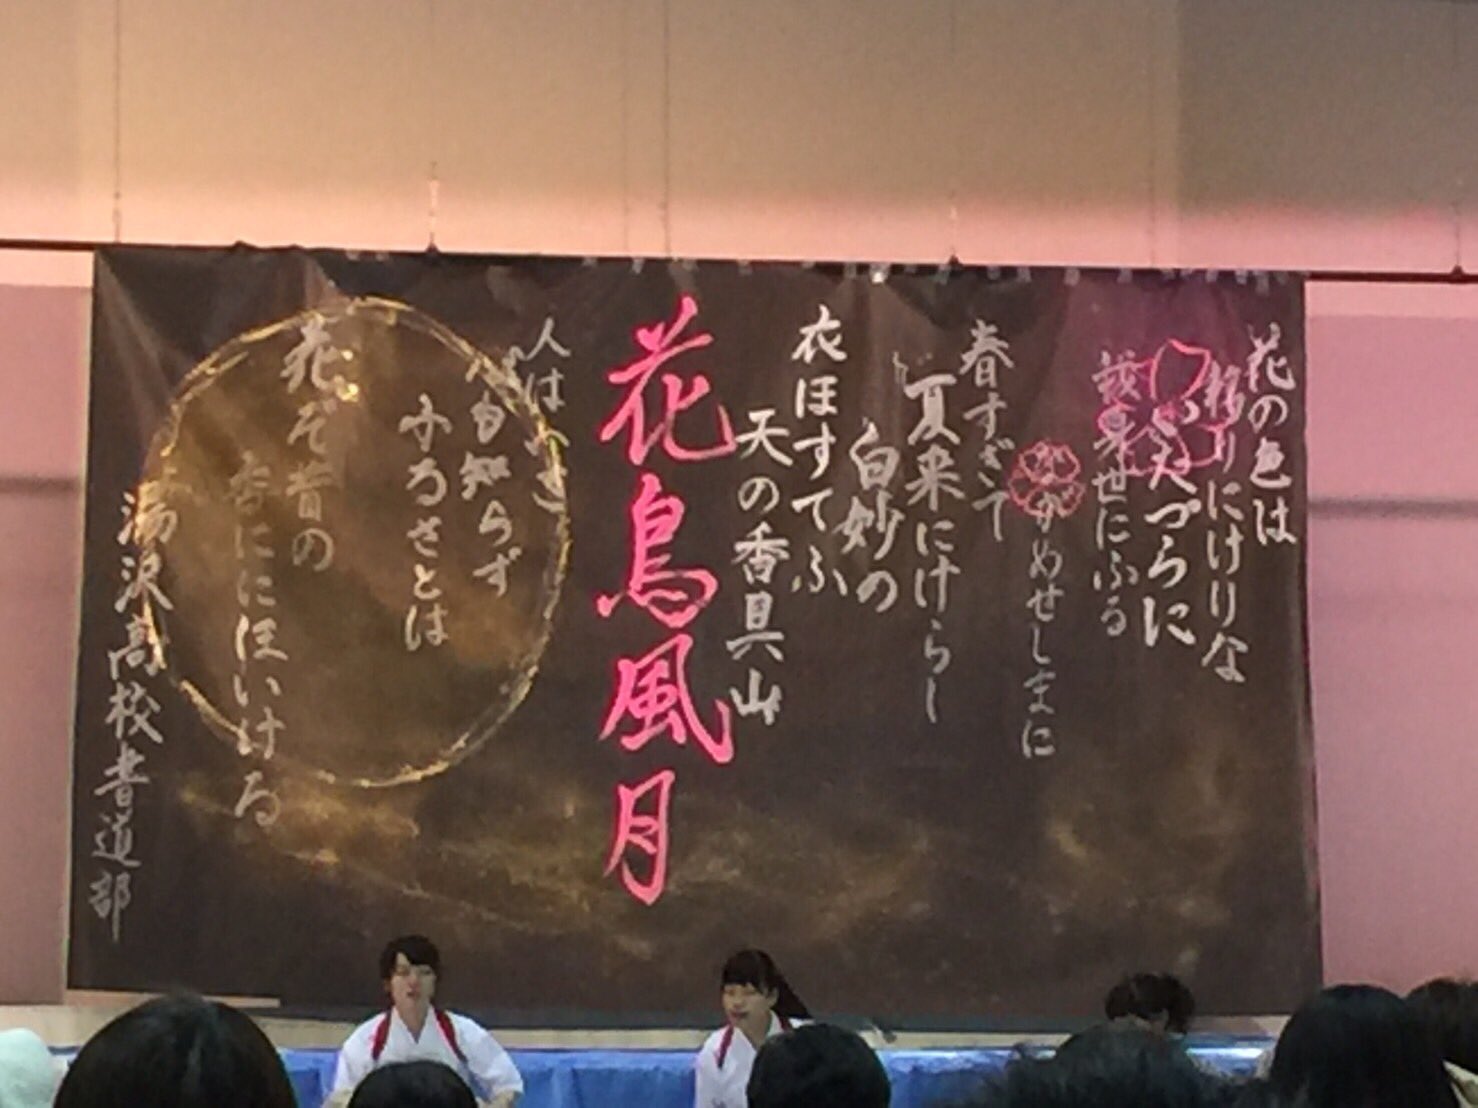 花の色は
移りにけりな
いたづらに
我身世にふる
ながめせしまに
春すぎて
夏来にけらし
白妙の
衣ほすてふ
天の香具山
花鳥風月
人はいさ
心も知らず
ふるさとは
花ぞ昔の
香ににほいける
湯沢高校書道部